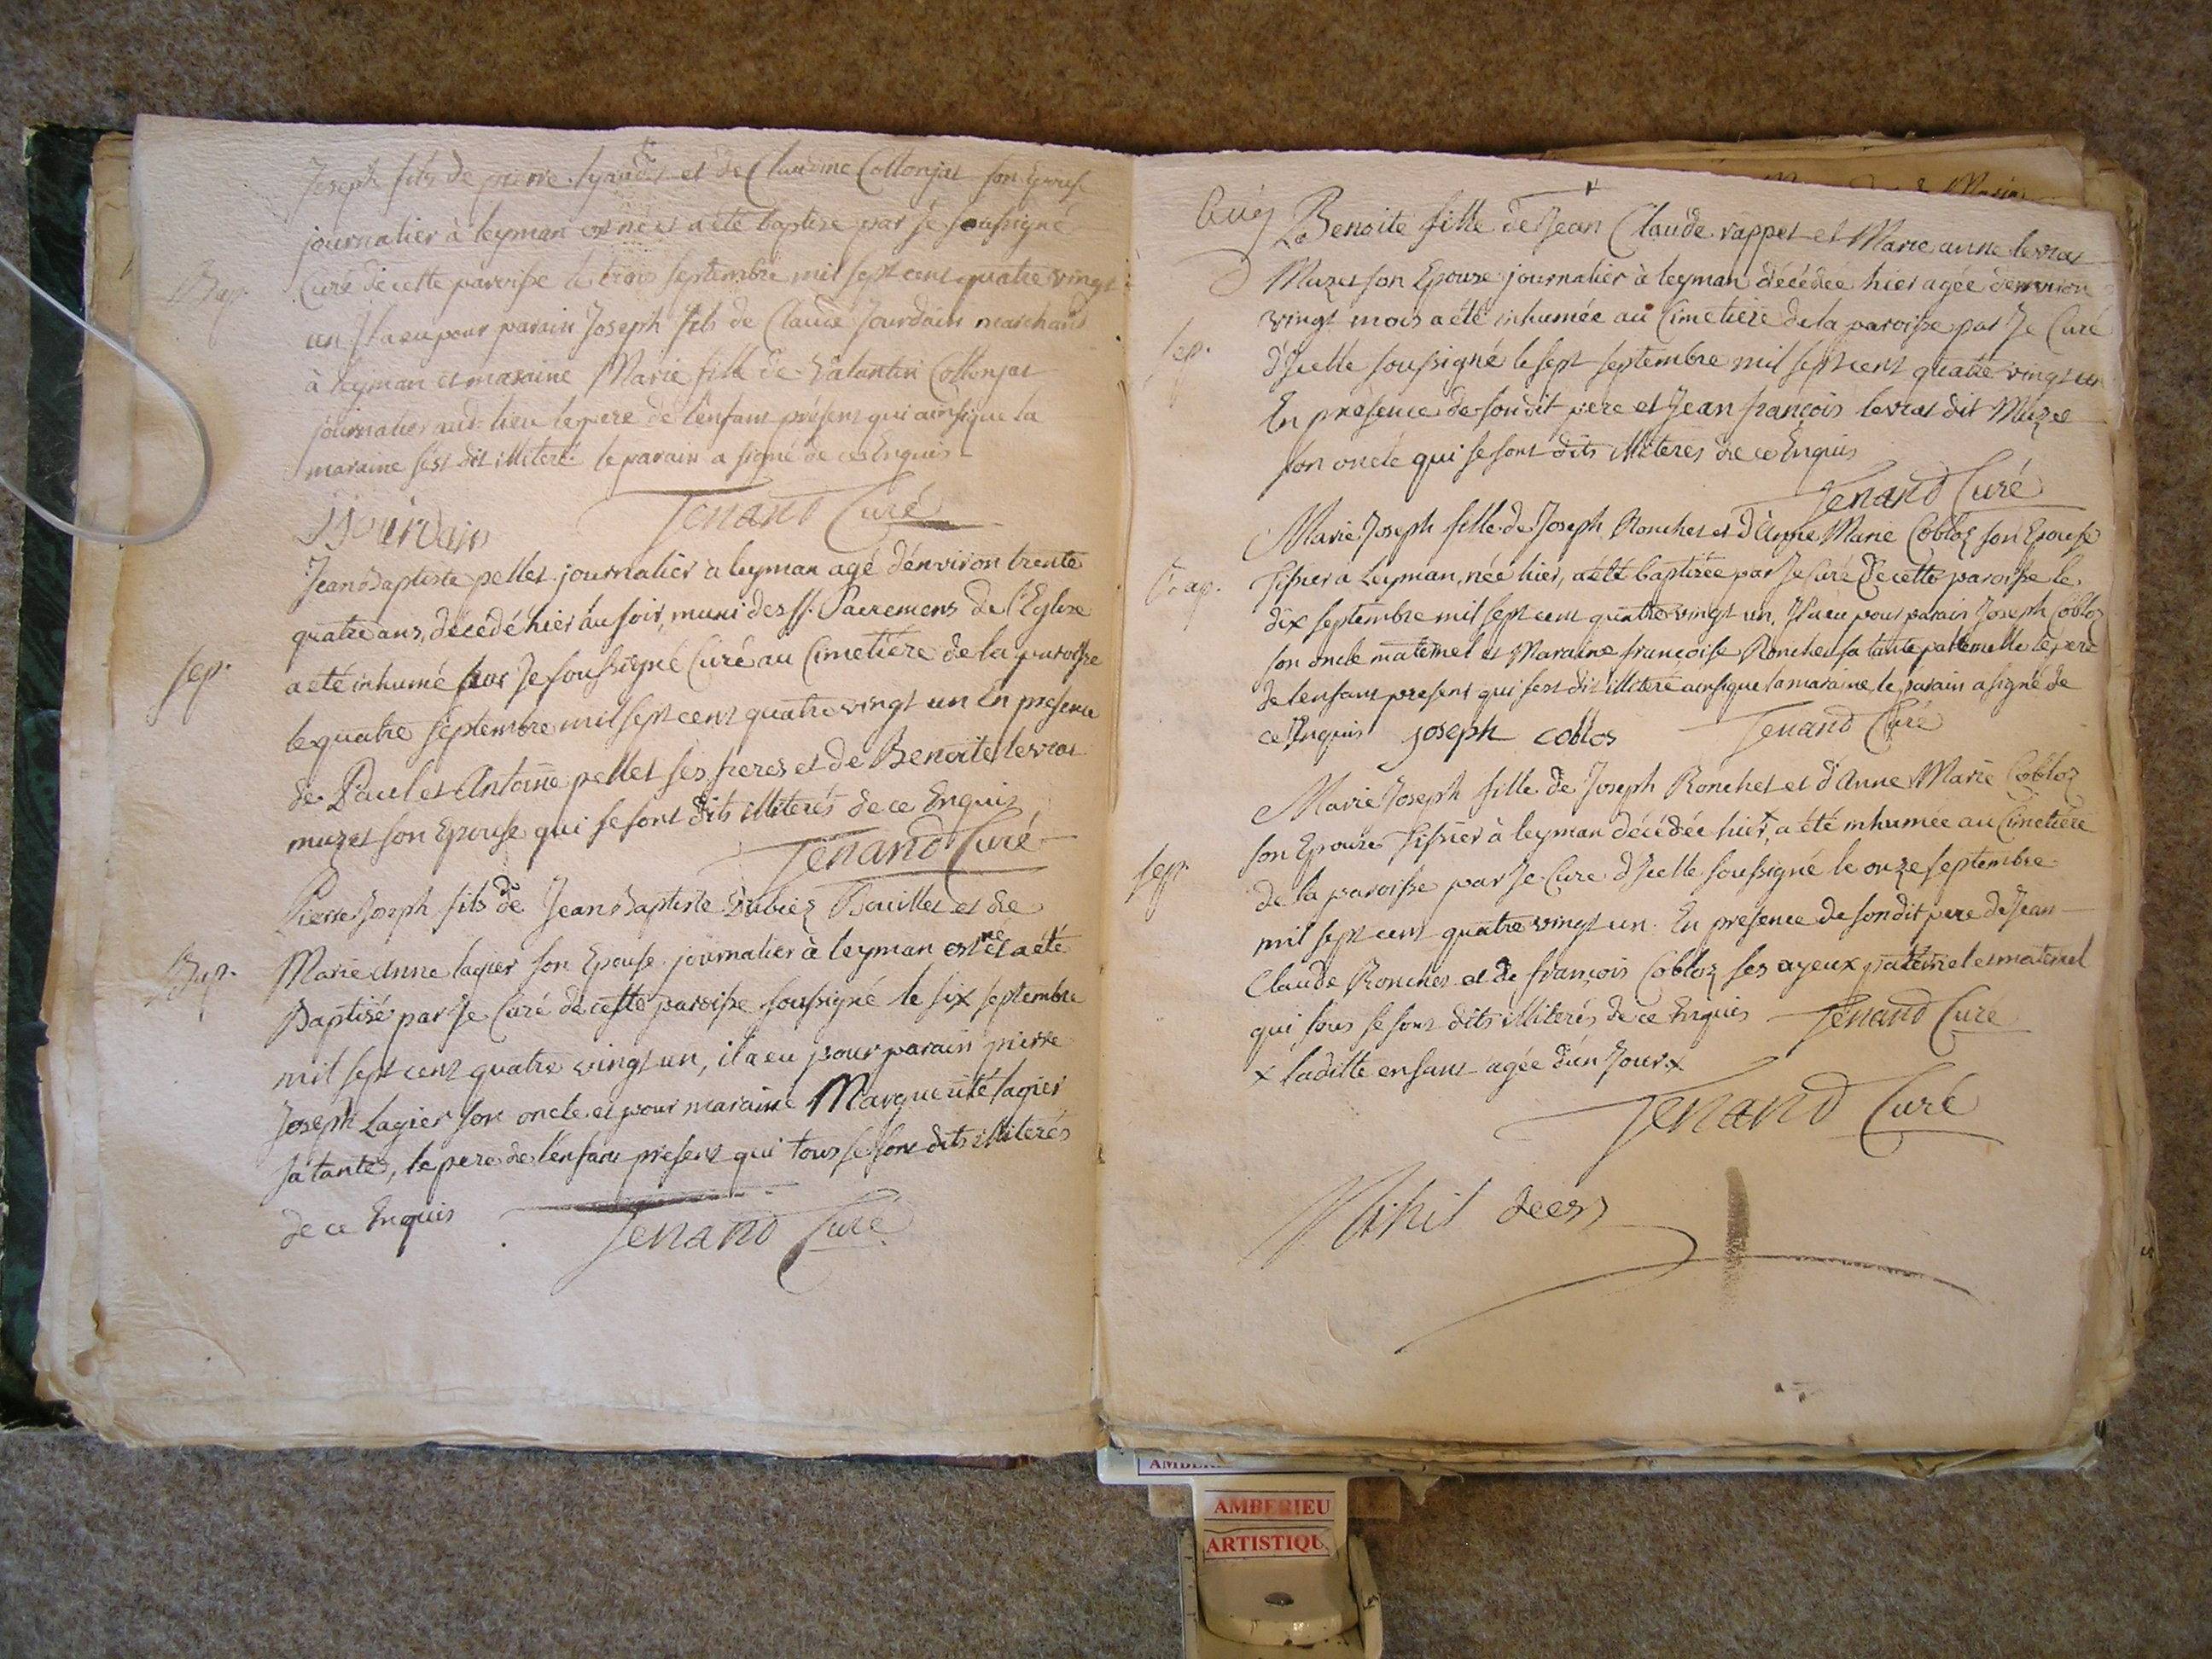 Joseph fils de pierre et de Claudine Collonjat son Epouse
journalier à leyman est né et a été baptisé par je soussigné
Bap.
Curé de cette paroisse le trois septembre mil sept cent quatre vingt
un Il a eu pour parain Joseph fils de Claude Jourdain marchand
à leyman et maraine Marie fille de Valantin Collonjat
journalier aud. lieu le pere de l'enfant présent qui ainsi que la
maraine s'est dit illiteré le parain a signé de ce Enquis
JJourdain Tenand Curé
Jean Baptiste pellet journalier a leyman agé d'environ trente
quatre ans, décedé hier au soir, muni des SS. Sacremens de l'Eglise
sep.
a été inhumé par Je soussigné Curé au Cimetière de la paroisse
le quatre septembre mil sept cent quatre vingt un En presence
de Paul et Antoine pellet ses freres et de Benoite levrat
muzet son Epouse qui se sont dits illiterés de ce Enquis
Tenand Curé
Pierre Joseph fils de Jean Baptiste Dubiez Bouillet et de
Bap.
Marie Anne lagier son Epouse journalier à leyman est né et a été
Baptisé par Je Curé de cette paroisse soussigné le six septembre
mil sept cent quatre vingt un, il a eu pour parain pierre
Joseph Lagier son oncle et pour maraine Marguerite lagier
sa tante, le pere de l'enfant present qui tous se sont dits illiterés
de ce Enquis Tenand Curé
Benoite fille de Jean Claude rappet et Marie anne levrat
Muzet son Epouze journalier à leyman décédée hier agée denviron
vingt mois a été inhumée au Cimetière de la paroisse par Je Curé
sep.
d'Icelle soussigné le sept septembre mil sept cent quatre vingt un
En présence de son dit pere et Jean françois levrat dit Muzet
son oncle qui se sont dits illiterés de ce Enquis
Tenand Curé
Marie Joseph fille de Joseph Ronchet et d'Anne Marie Cobloz son Epouse
Bap.
Tissier a Leyman, née hier, a été baptizée par Je Curé de cette paroisse le
dix septembre mil sept cent quatre vingt un, Il a eu pour parain Joseph Cobloz
son oncle maternel et Maraine françoise Ronchet sa tante paternelle le pere
de lenfant present qui sest dit illiteré ainsi que la maraine, le parain a signé de
ce Enquis joseph coblos Tenand Curé
Marie Joseph fille de Joseph Ronchet et d'Anne Marie Cobloz
son Epouze Tissier à leyman décédée hier x, a été inhumée au Cimetière
sep.
de la paroisse par Je Curé d'Icelle soussigné le onze septembre
mil sept cent quatre vingt un. En presence de son dit pere de Jean
Claude Ronchet et de françois Cobloz ses ayeux paternel et maternel
qui tous se sont dits illiterés de ce Enquis Tenand Curé
x laditte enfant agée d'un Jour x
Tenand Curé
Nihil deest
AMBERIEU
ARTISTIQU